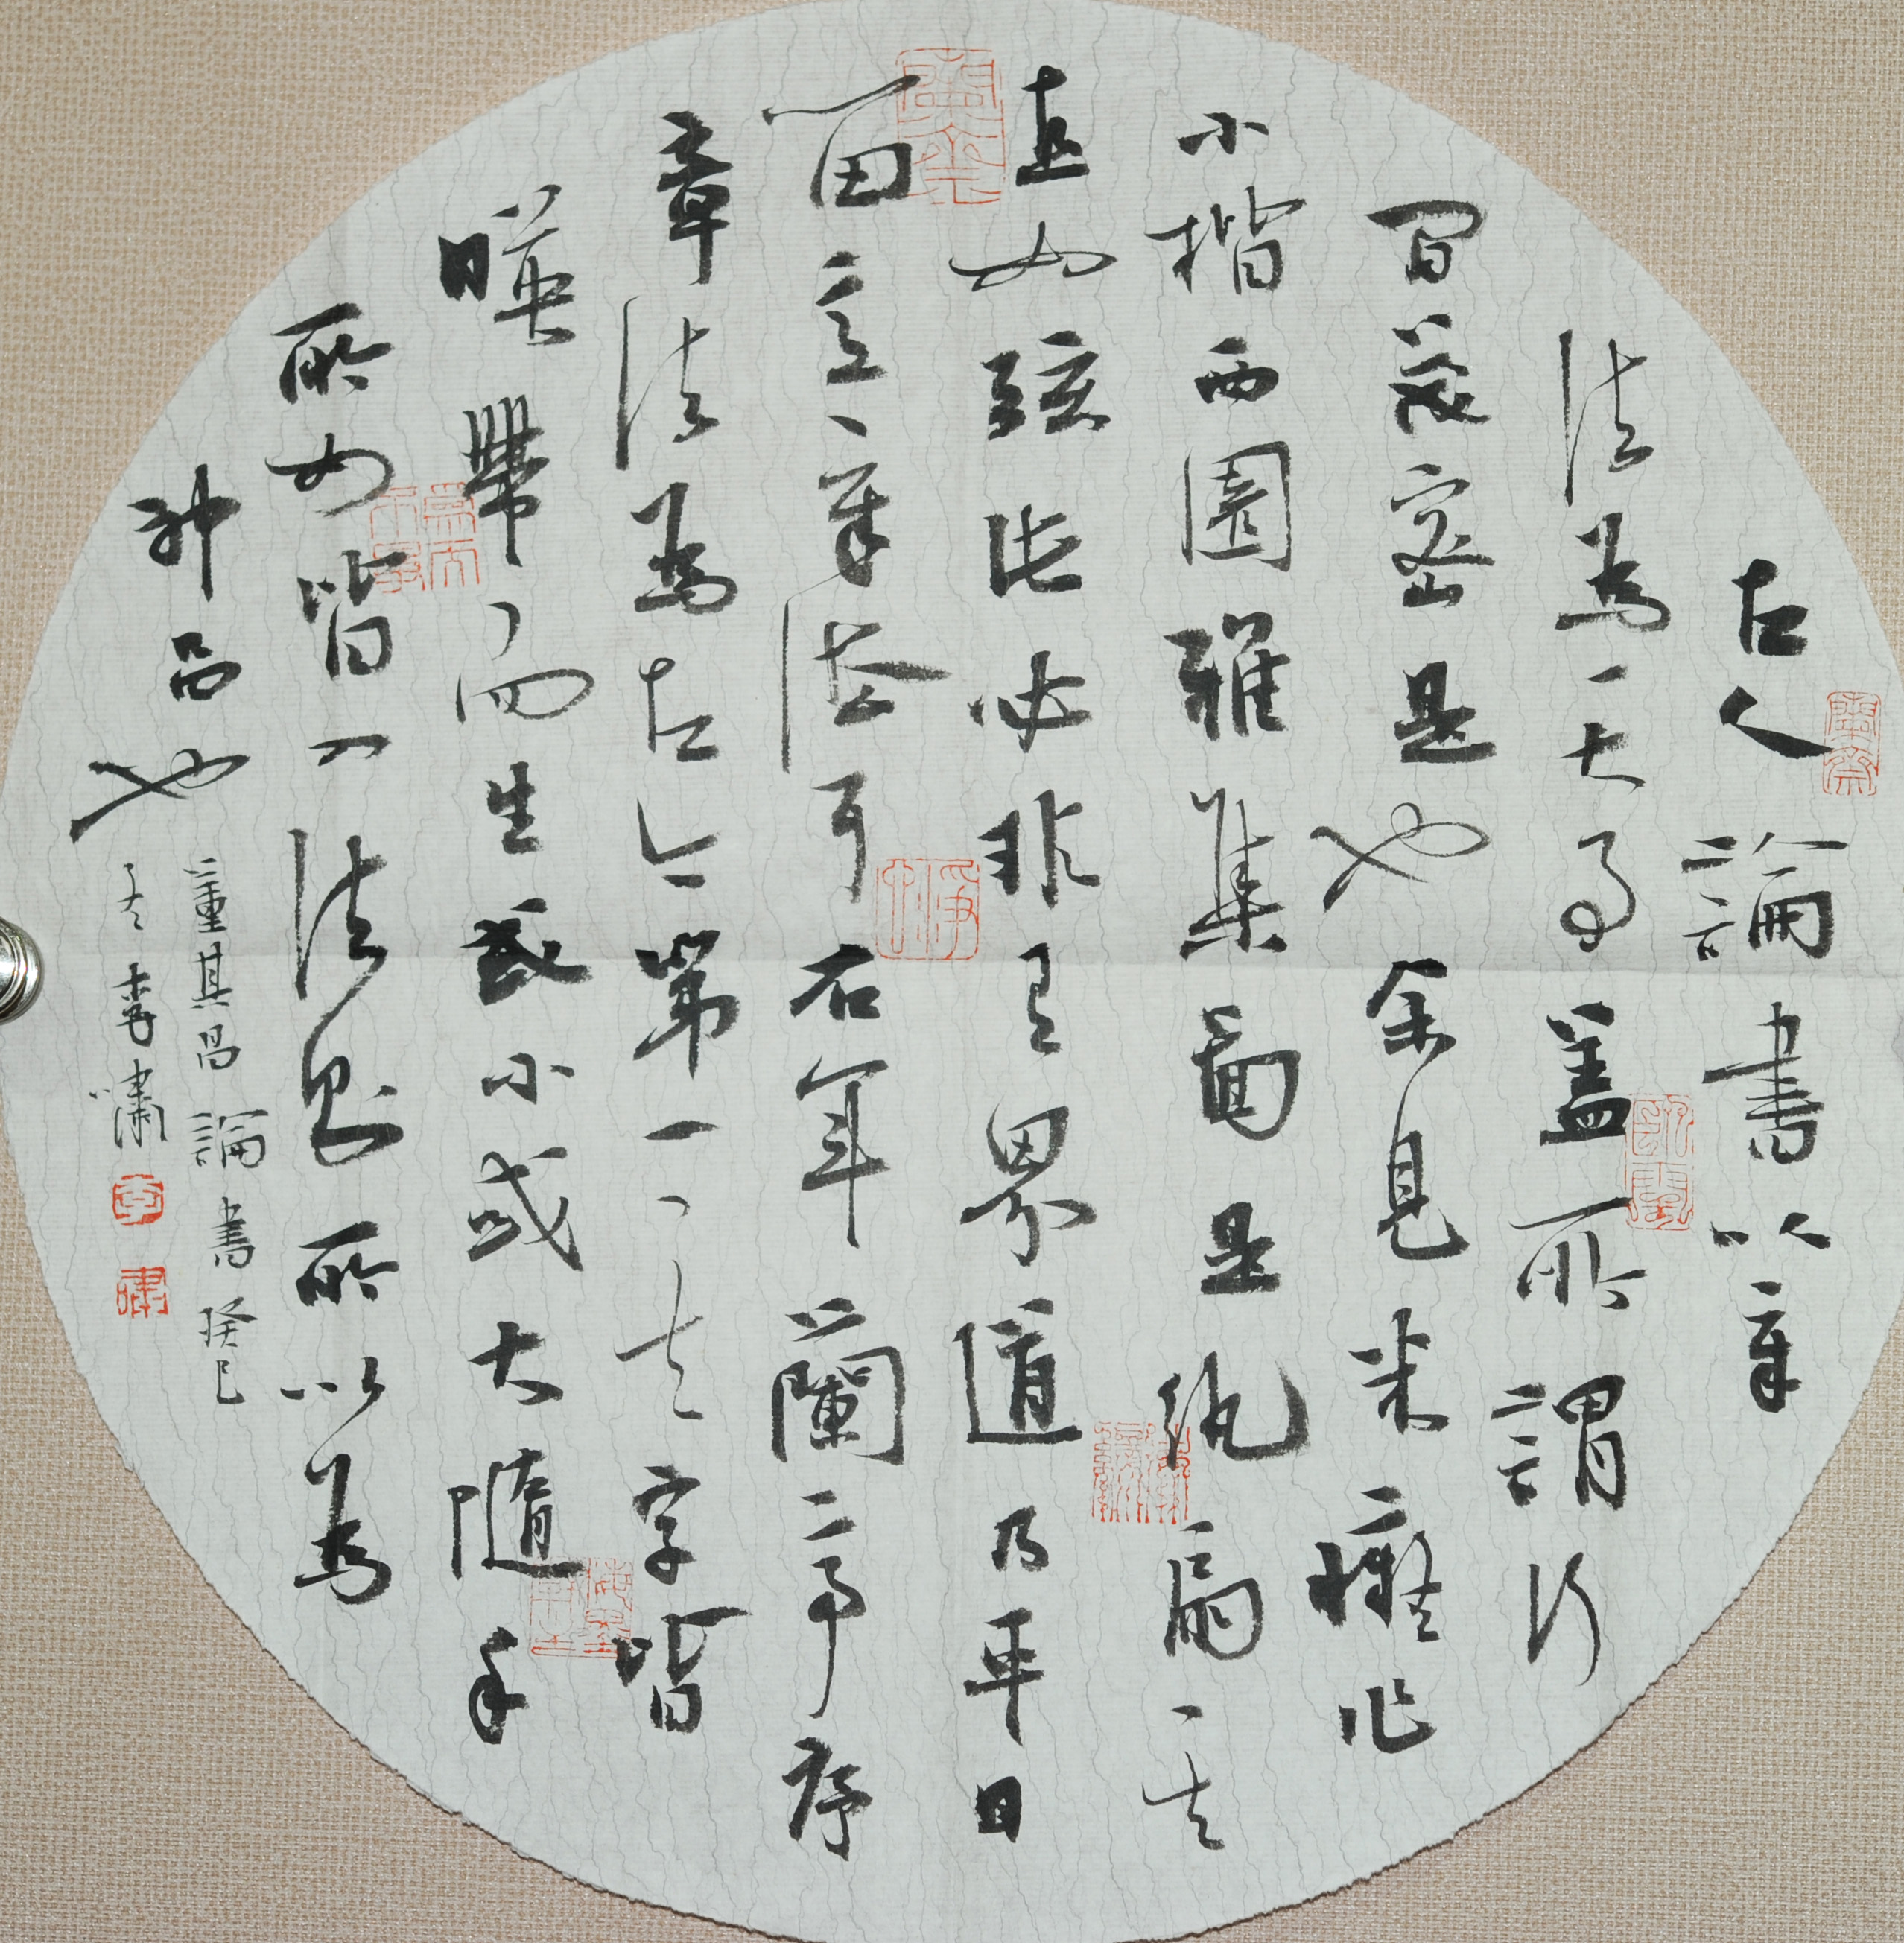 古人論書以章
法為一大事盖所謂行
間茂密是也余見米癡作
小楷西園雅集圖是紈扇其
直如弦此必非有界道乃平日
留意章法耳右軍蘭亭序
章法為古今第一其字皆
暎帶而生或小或大隨手
所如皆入法則所以為
神品也
董其昌論書癸巳
李嘯